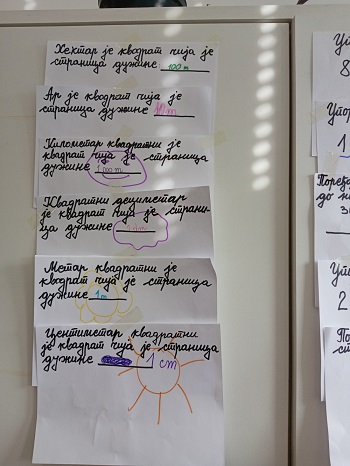 Хектар је квадрат чија је
страница дужине 100 m
Ар је квадрат чија је
страница дужине 10 m
Километар квадратни је
квадрат чија је страница
дужине 1000 m
Квадратни дециметар
је квадрат чија је страни-
ца дужине
Метар квадратни је
квадрат чија је страница
дужине 1 m
Центиметар квадратни
је квадрат чија је страница
дужине 1 cm
У
8
Упо
1
Поређа
до на
3
Ут
2
По
ст